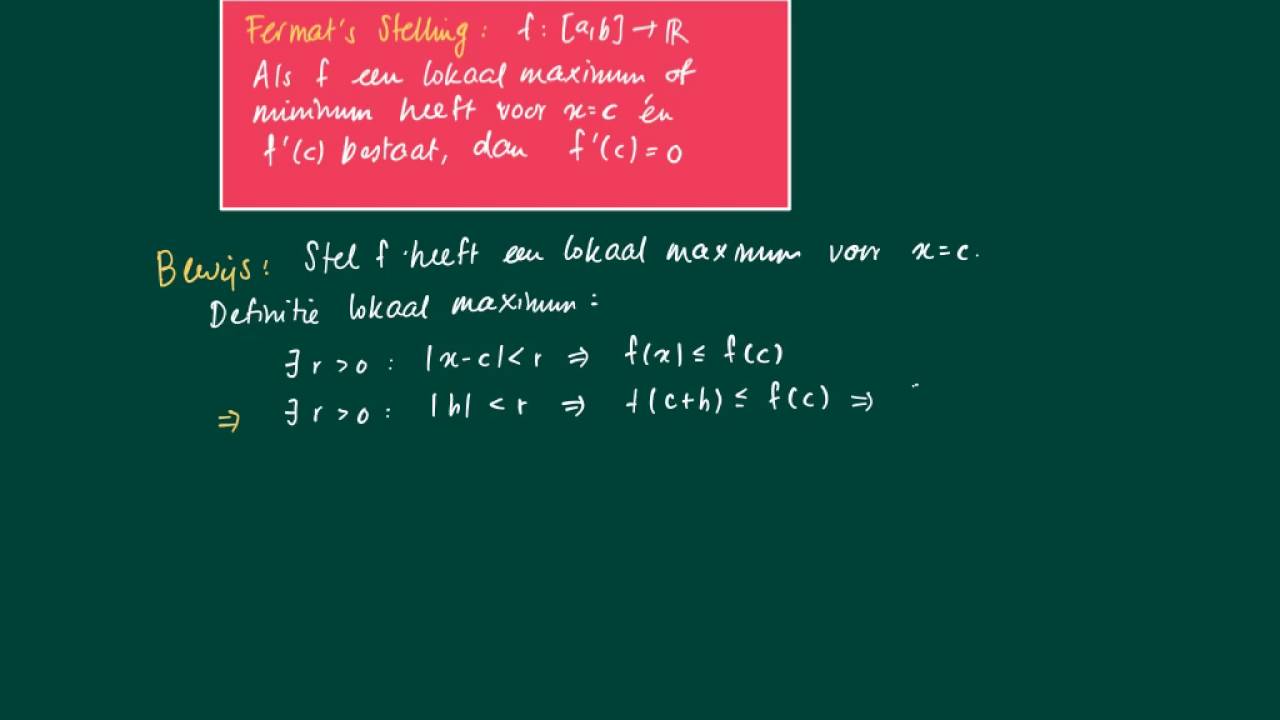 Fermat's Stelling: f: [a,b] → ℝ
Als f een lokaal maximum of
minimum heeft voor x=c én
f'(c) bestaat, dan f'(c)=0
Bewijs: Stel f heeft een lokaal maximum voor x=c.
Definitie lokaal maximum:
∃ r>0: |x-c|<r ⇒ f(x) ≤ f(c)
⇒ ∃ r>0: |h|<r ⇒ f(c+h) ≤ f(c) ⇒